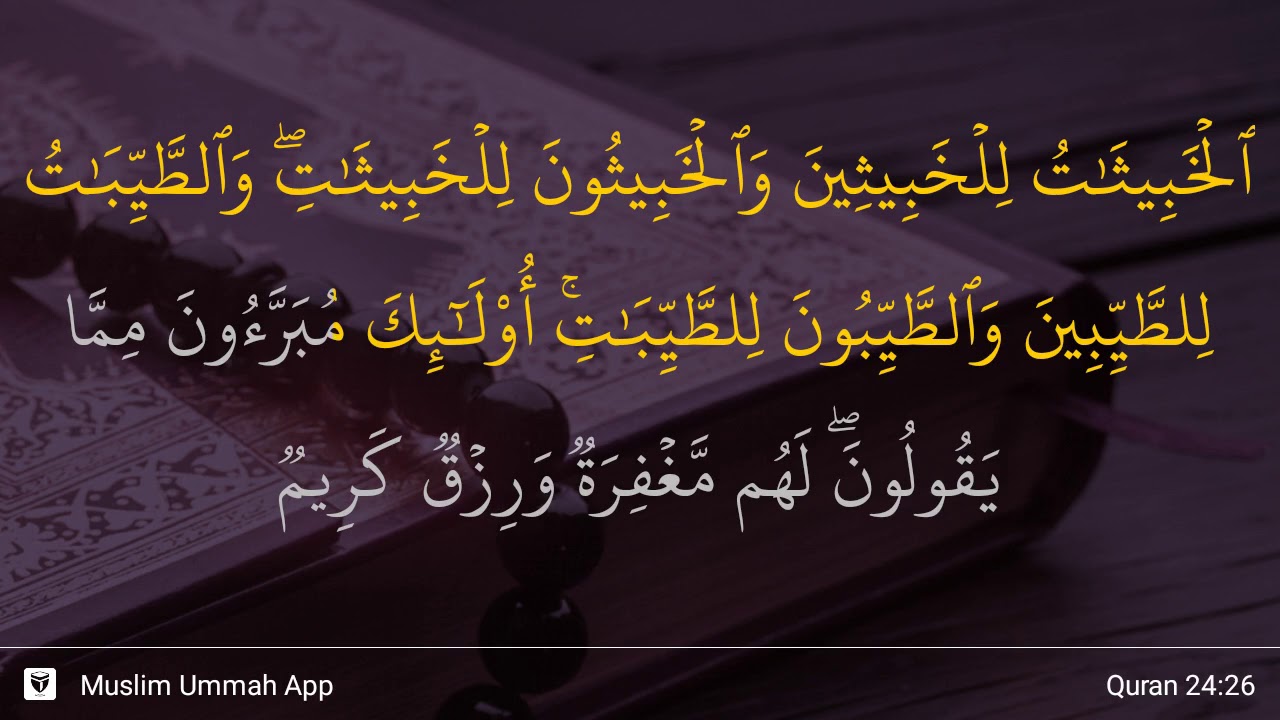 ٱلْخَبِيثَـٰتُ لِلْخَبِيثِينَ وَٱلْخَبِيثُونَ لِلْخَبِيثَـٰتِ ۖ وَٱلطَّيِّبَـٰتُ
لِلطَّيِّبِينَ وَٱلطَّيِّبُونَ لِلطَّيِّبَـٰتِ ۚ أُو۟لَـٰٓئِكَ مُبَرَّءُونَ مِمَّا
يَقُولُونَ ۖ لَهُم مَّغْفِرَةٌ وَرِزْقٌ كَرِيمٌ
Muslim Ummah App
Quran 24:26